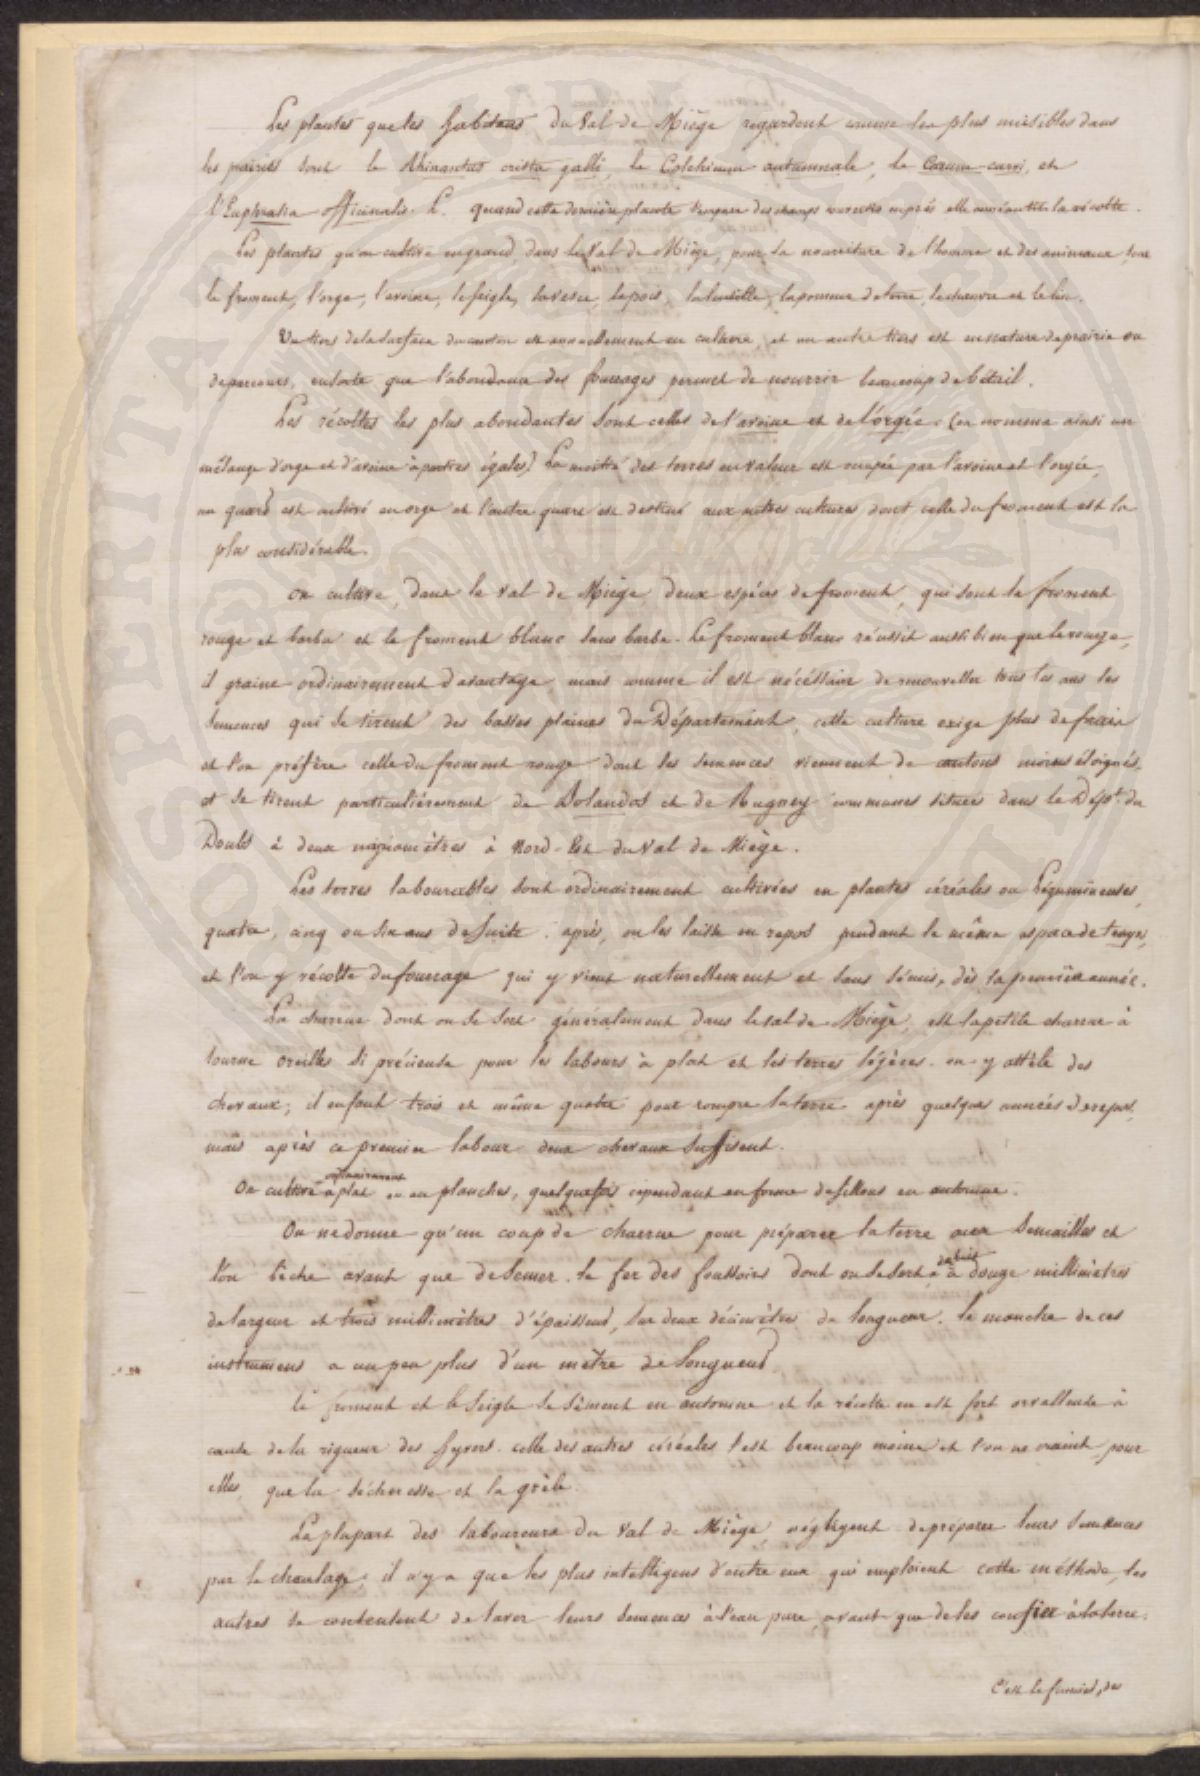 Les plantes que les habitans du Val de Miège regardent comme les plus nuisibles dans
les prairies sont le Rhinantus crista galli, le Colchicum autumnale, le Carum-carvi, et
l'Euphrasia officinalis. L. quand cette dernière plante s'empare des champs ouverts en prés elle anéantit la récolte.
Les plantes qu'on cultive en grand, dans le Val de Miège, pour la nourriture de l'homme et des animaux, sont
le froment, l'orge, l'avoine, le seigle, la vesce, le pois, la lentille, la pomme de terre, le chanvre et le lin.
Un tiers de la surface du canton est annuellement en culture, et un autre tiers est en nature de prairie ou
de parcours, ensorte que l'abondance des fourrages permet de nourrir beaucoup de bétail.
Les récoltes les plus abondantes sont celles de l'avoine et de l'orgée. (on nomme ainsi un
mélange d'orge et d'avoine à parties égales) La moitié des terres en valeur est occupée par l'avoine et l'orgée,
un quart est cultivé en orge et l'autre quart est destiné aux autres cultures dont celle du froment est la
plus considérable.
On cultive, dans le Val de Miège deux espèces de froment, qui sont le froment
rouge et barbu et le froment blanc sans barbe. Le froment blanc réussit aussi bien que le rouge,
il graine ordinairement d'avantage mais comme il est nécéssaire de renouveller tous les ans les
semences qui se tirent des basses plaines du Département, cette culture exige plus de frais
et l'on préfère celle du froment rouge dont les semences viennent de cantons moins éloignés,
et se tirent particulièrement de Bolandos et de Rugney communes situées dans le Dépt. du
Doubs à deux myriamètres à Nord-Est du Val de Miège.
Les terres labourables sont ordinairement cultivées en plantes céréales ou légumineuses,
quatre, cinq ou six ans de suite. après, on les laisse en repos pendant le même espace de temps,
et l'on y récolte du fourrage qui y vient naturellement et sans sémis, dès la première année.
La charrue dont on se sert généralement dans le val de Miège, est la petite charrue à
tourne oreilles si précieuse pour les labours à plat et les terres légères. on y attèle des
chevaux; il en faut trois et même quatre pour rompre la terre après quelques années de repos,
mais après ce premier labour deux chevaux suffisent.
On cultive ordinairement à plat ou en planches, quelquefois cependant en forme de sillons en automne.
On ne donne qu'un coup de charrue pour préparer la terre aux semailles et
l'on bêche avant que de semer. le fer des fossoirs dont on se sert a de huit à douze millimètres
de largeur et trois millimètres d'épaisseur, sur deux décimètres de longueur. le manche de ces
instrumens a un peu plus d'un mètre de longueur
le froment et le seigle se sèment en automne et la récolte en est fort orvalleuse à
cause de la rigueur des hyvers. celle des autres céréales l'est beaucoup moins et l'on ne craint, pour
elles, que la sécheresse et la grêle.
La plupart des laboureurs du val de Miège, négligent de préparer leurs semences
par le chaulage; il n'y a que les plus intelligens d'entre eux qui emploient cette méthode, les
autres se contentent de laver leurs semences à l'eau pure, avant que de les confier à la terre.
C'est le fumier, des